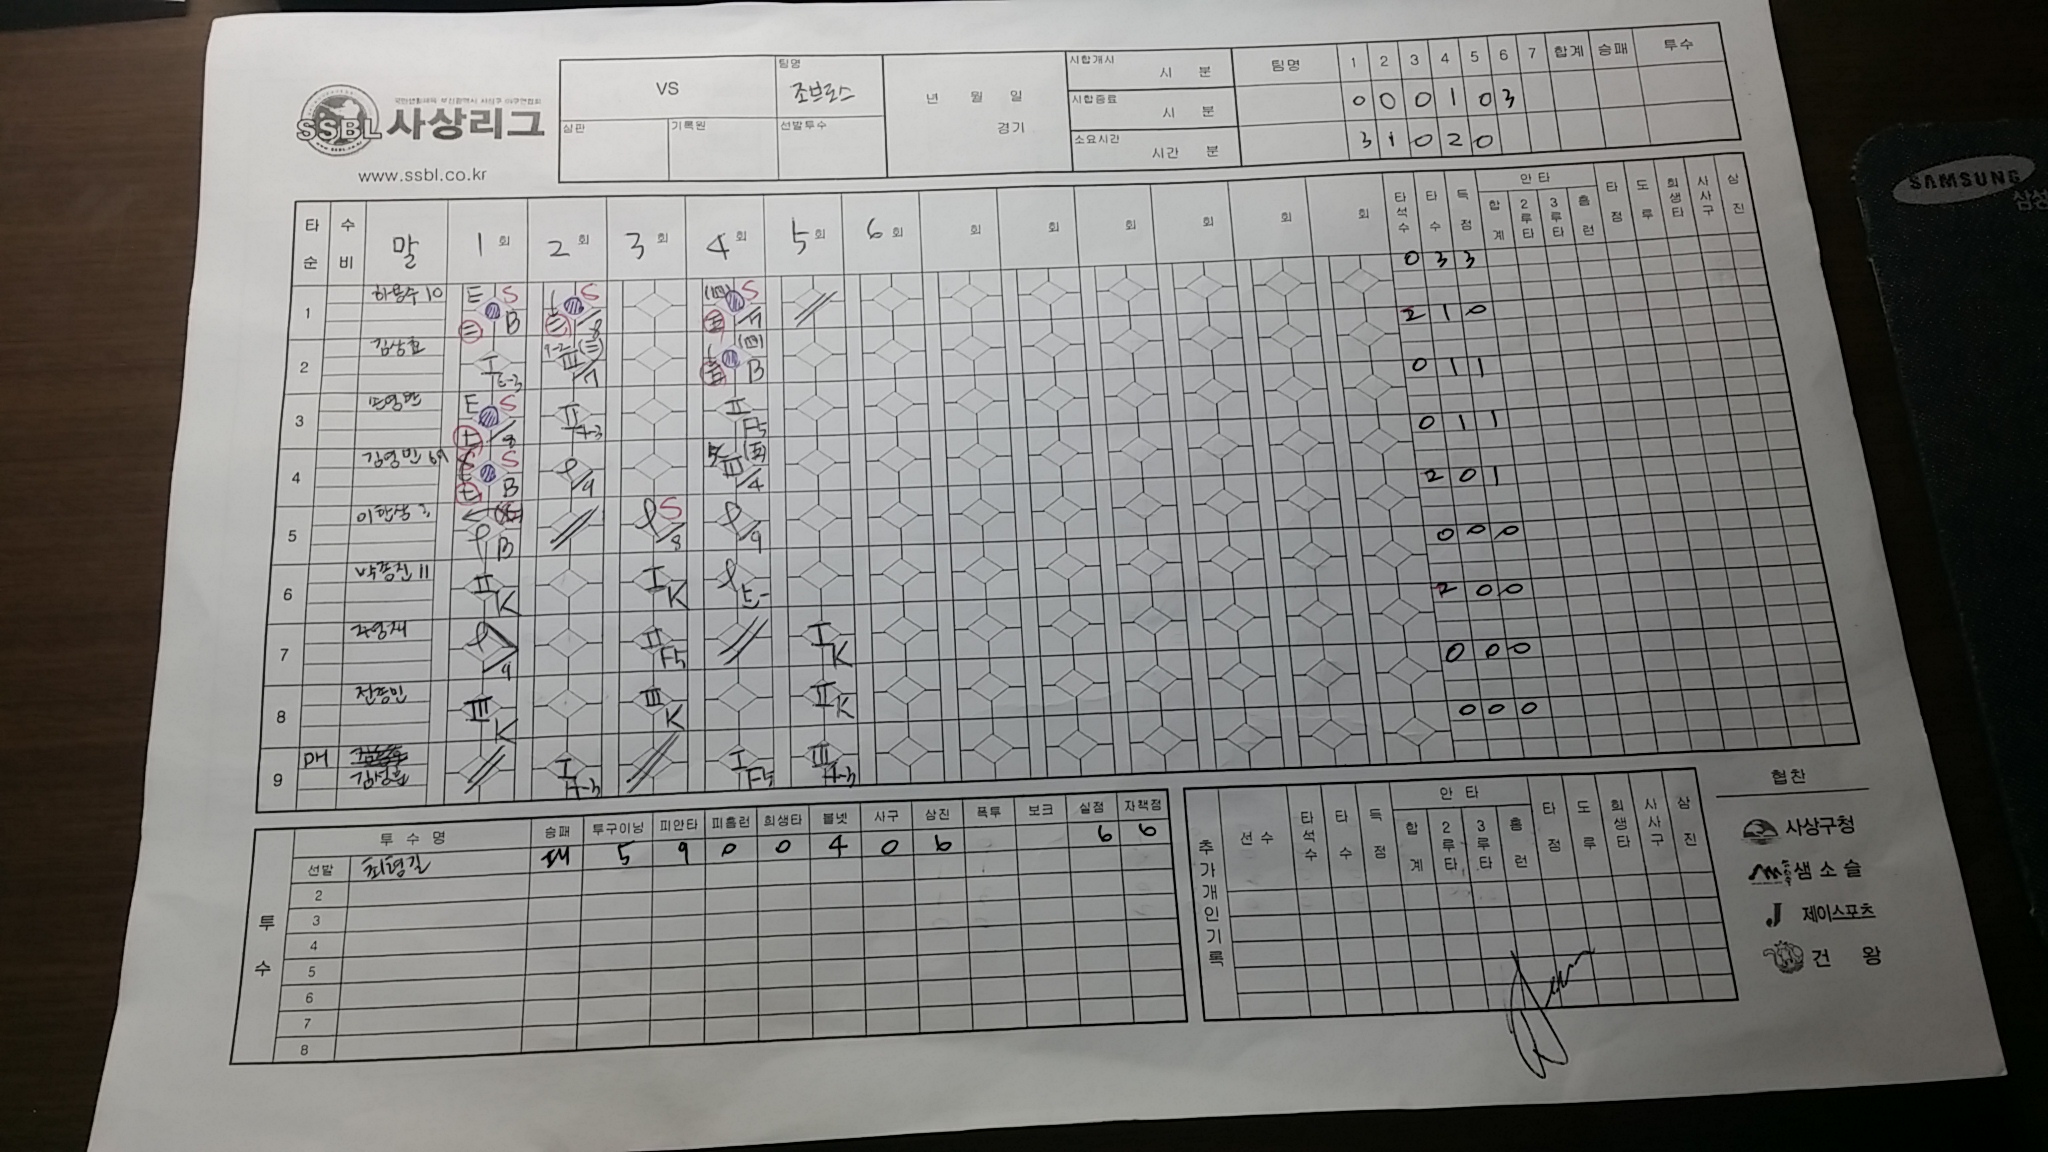 국민생활체육 부산광역시 사상구 야구연합회
SSBL 사상리그
www.ssbl.co.kr
VS
팀명
조브로스
심판
기록원
선발투수
년 월 일
경기
시합개시
시 분
시합종료
시 분
소요시간
시간 분
팀명 1 2 3 4 5 6 7 합계 승패 투수
0 0 0 1 0 3
3 1 0 2 0
타순 수비 말 1회 2회 3회 4회 5회 6회 회 회 회 회 회 회
타석수 타수 득점 안타 합계 2루타 3루타 홈런 타점 도루 희생타 사사구 삼진
0 3 3
1
E S
B
S
8
S
7
2 1 0
2 김상효
I E-3
III 7
B
0 1 1
3
E S
8
II 4-3
II F5
0 1 1
4 김영민 69
S
B
9
III 4
2 0 1
5
B
S
8
9
0 0 0
6 박종진 11
II K
I K
E-
2 0 0
7
9
II F5
I K
0 0 0
8 전종민
III K
III K
II K
0 0 0
9 DH
I 4-3
I F5
III 4-3
투수
투수명 승패 투구이닝 피안타 피홈런 희생타 볼넷 사구 삼진 폭투 보크 실점 자책점
선발 최형길 패 5 9 0 0 4 0 6 6 6
2
3
4
5
6
7
8
추가개인기록
선수 타석수 타수 득점 안타 합계 2루타 3루타 홈런 타점 도루 희생타 사사구 삼진
협찬
사상구청
샘소슬
제이스포츠
건왕
SAMSUNG
삼성